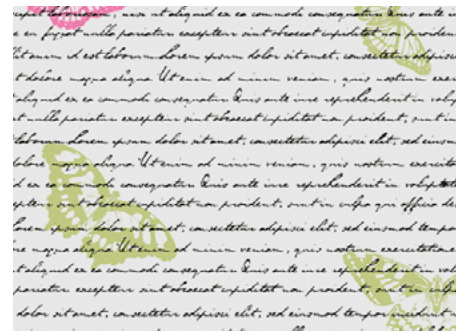 cepit laborum, nisi ut aliquid ex ea commodi consequatur Quis aute i
e eu fugiat nulla pariatur excepteur sint obcaecat cupiditat non proiden
it anim id est laborum Lorem ipsum dolor sit amet, consectetur adipisci
t dolore magna aliqua Ut enim ad minim veniam, quis nostrum exer
aliquid ex ea commodi consequatur Quis aute iure reprehenderit in volup
t nulla pariatur excepteur sint obcaecat cupiditat non proident, sunt in
laborum Lorem ipsum dolor sit amet, consectetur adipisci elit, sed eius
dolore magna aliqua Ut enim ad minim veniam, quis nostrum exercita
d ex ea commodi consequatur Quis aute iure reprehenderit in voluptat
epteur sint obcaecat cupiditat non proident, sunt in culpa qui officia de
Lorem ipsum dolor sit amet, consectetur adipisci elit, sed eiusmod tempor
re magna aliqua Ut enim ad minim veniam, quis nostrum exercitatione
t aliquid ex ea commodi consequatur Quis aute iure reprehenderit in vol
pariatur excepteur sint obcaecat cupiditat non proident, sunt in culpa
dolor sit amet, consectetur adipisci elit, sed eiusmod tempor incidunt u